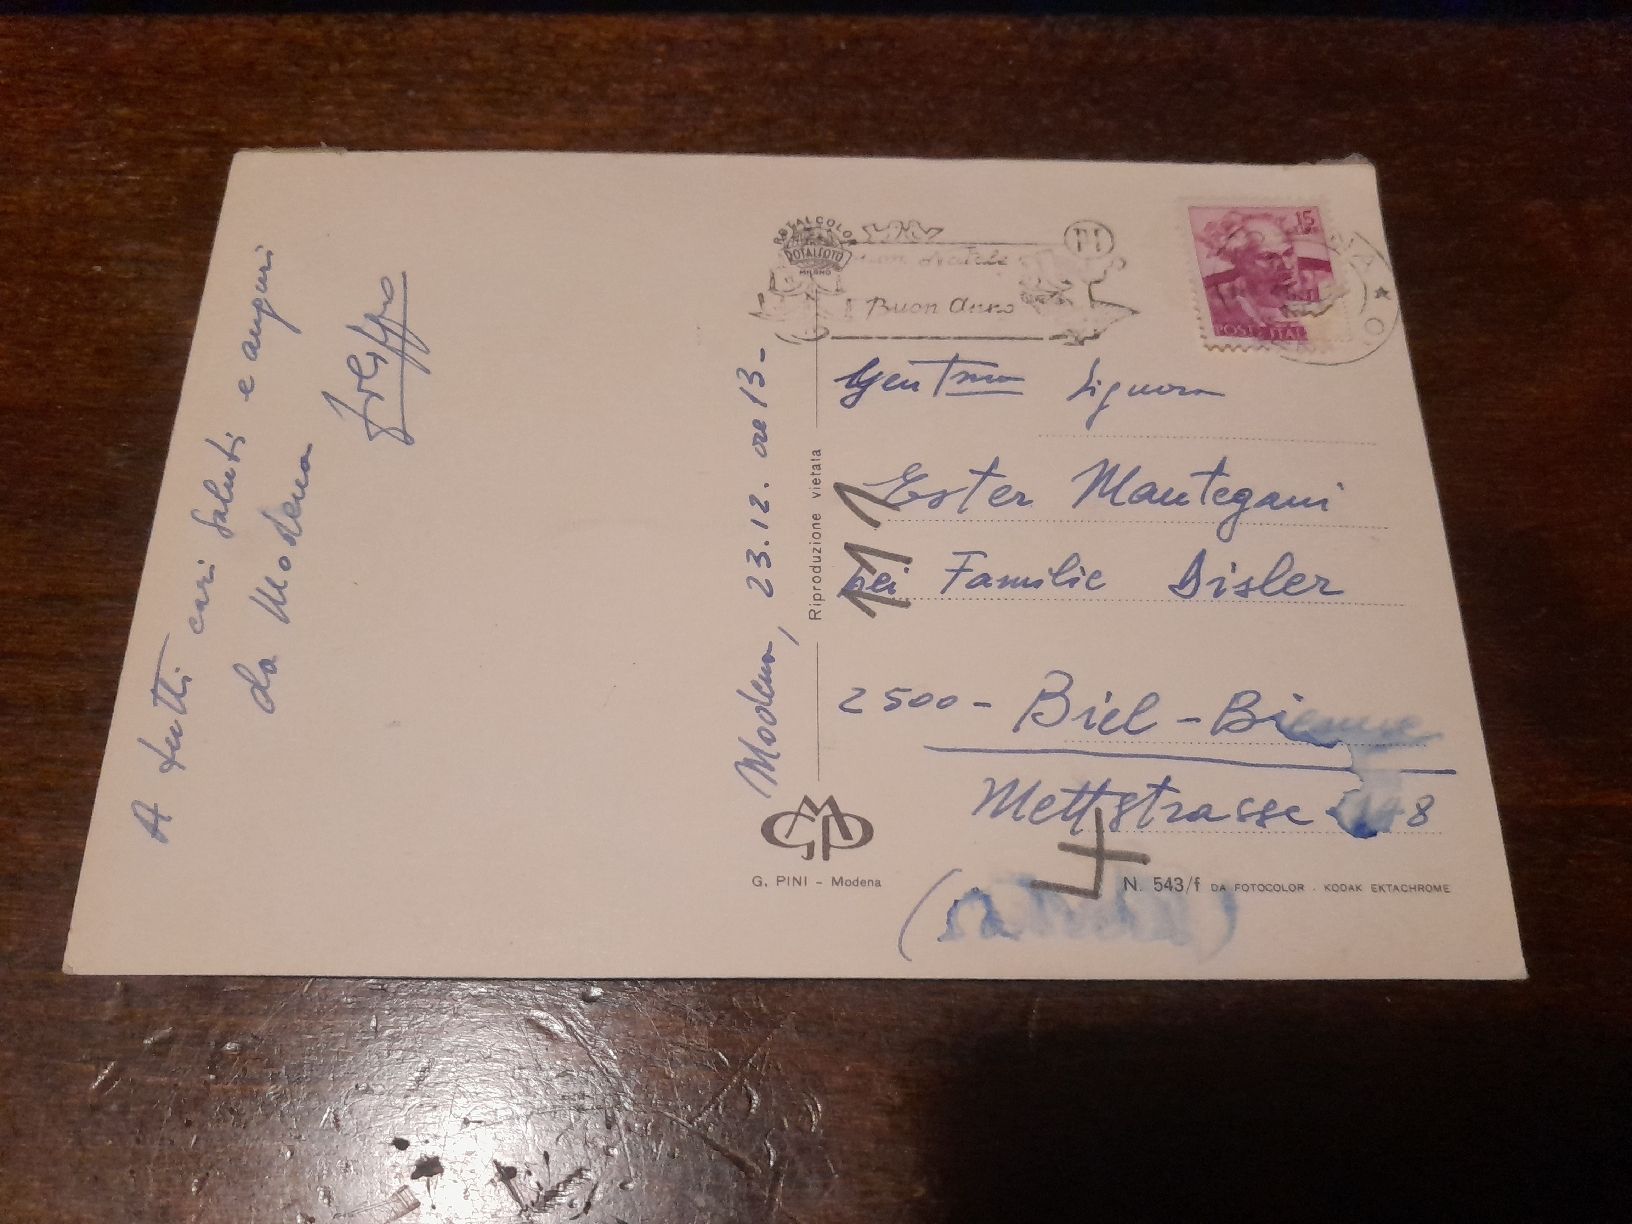 A tutti cari saluti e auguri
da Modena
Filippo
Modena, 23.12. ore 13-
ROTALCOLOR
ROTALFOTO
MILANO
Buon Natale
Buon Anno
15
POSTE ITAL
Riproduzione vietata
Gent.ma Signora
Ester Mantegani
bei Familie Disler
2500 - Biel - Bienne
Mettstrasse 8
G. PINI - Modena
N. 543/f DA FOTOCOLOR . KODAK EKTACHROME